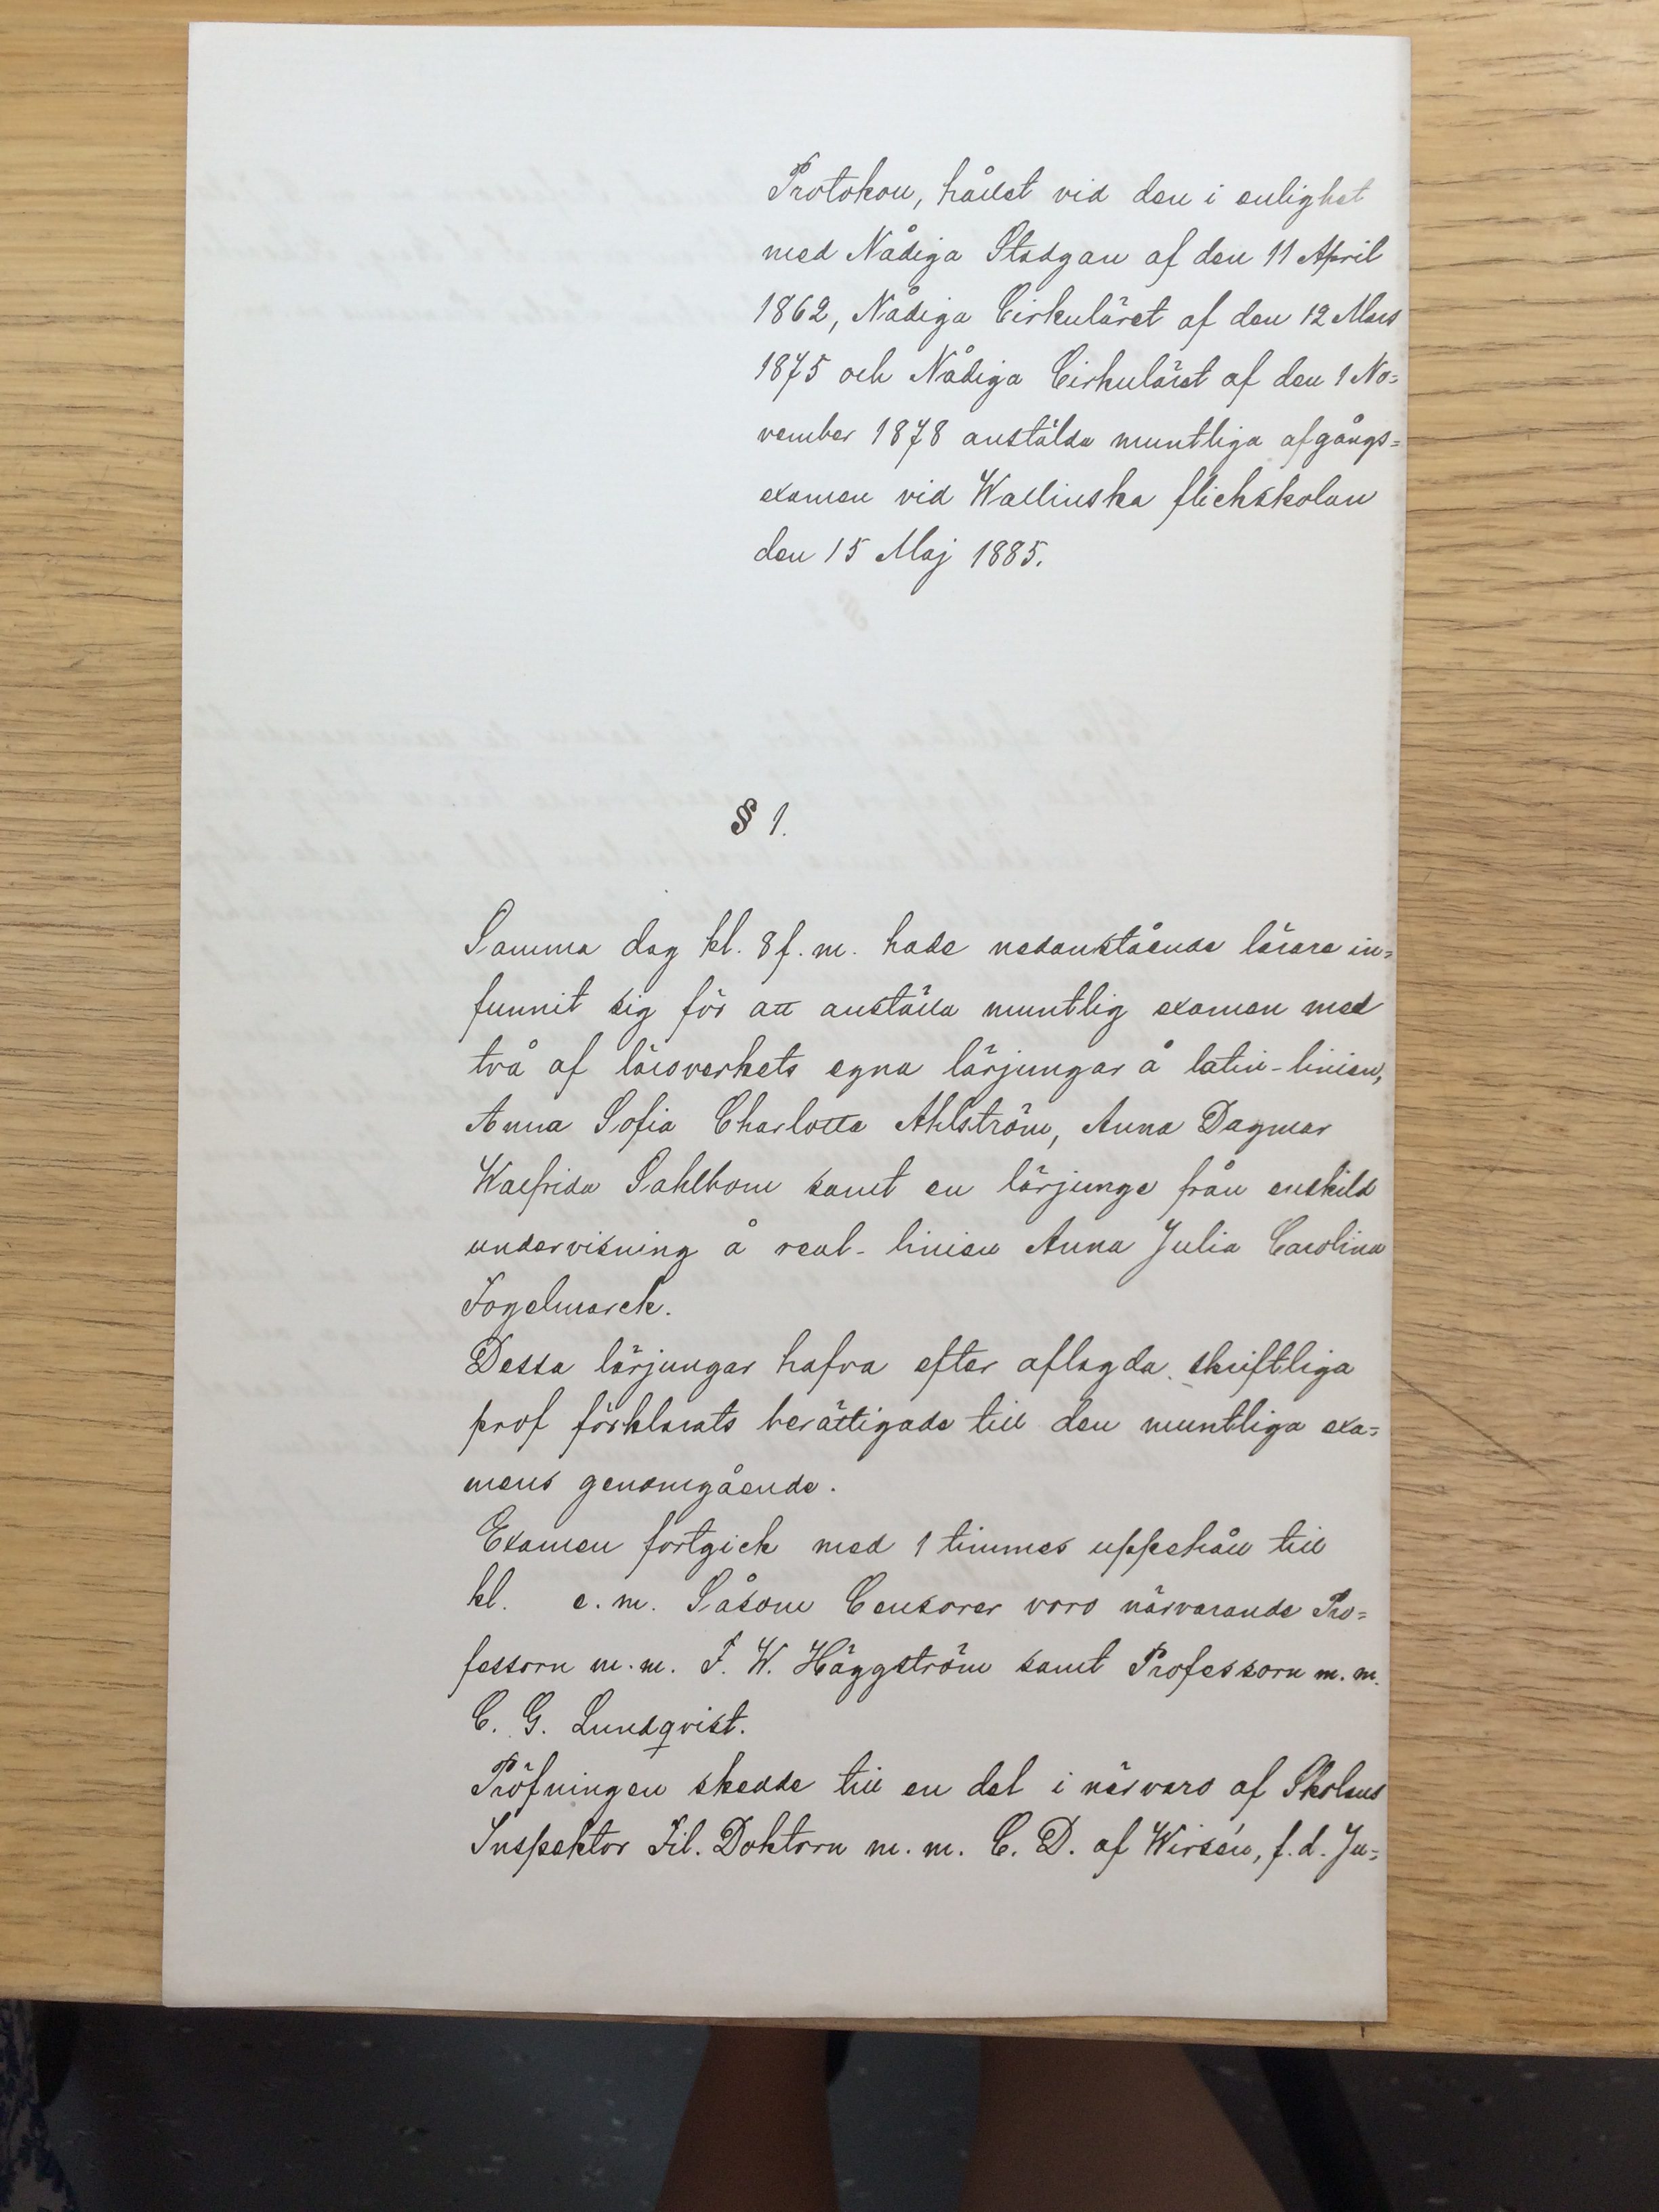 Protokoll, hållet vid den i enlighet
med Nådiga Stadgan af den 11 April
1862, Nådiga Cirkuläret af den 12 Mars
1875 och Nådiga Cirkuläret af den 1 No=
vember 1878 anstälda muntliga afgångs=
examen vid Wallinska flickskolan
den 15 Maj 1885.
§ 1.
Samma dag kl. 8 f. m. hade nedanstående lärare in=
funnit sig för att anställa muntlig examen med
två af läroverkets egna lärjungar å latin-linien,
Anna Sofia Charlotta Ahlström, Anna Dagmar
Walfrida Sahlbom samt en lärjunge från enskild
undervisning å real-linien Anna Julia Carolina
Fogelmarck.
Dessa lärjungar hafva efter aflagda skriftliga
prof förklarats berättigade till den muntliga exa=
mens genomgående.
Examen fortgick med 1 timmes uppehåll till
kl. e. m. Såsom Censorer voro närvarande Pro=
fessorn m. m. F. W. Häggström samt Professorn m. m.
C. G. Lundqvist.
Pröfningen skedde till en del i närvaro af Skolans
Inspektor Fil. Doktorn m. m. C. D. af Wirsén, f. d. Ju=